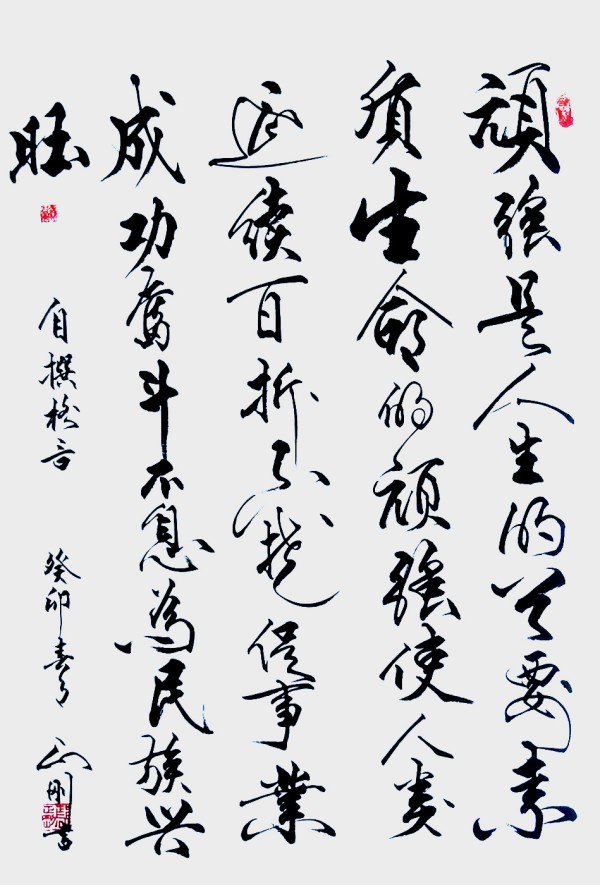 頑強是人生的首要素
质生命的頑強使人类
延續百折不撓促事業
成功奮斗不息為民族兴
旺
自撰格言 癸卯春月 刚書